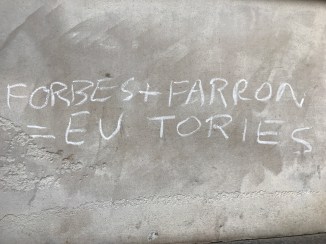 FORBES + FARRON
= EU TORIES